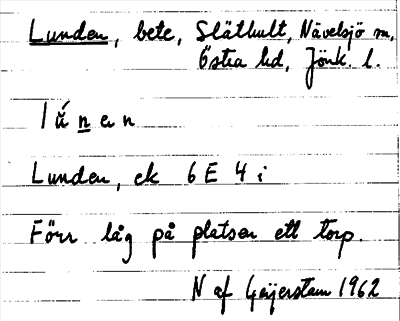 Lunden, bete, Släthult, Nävelsjö sn,
Östra hd, Jönk. l.
lú̊nen
Lunden, ek 6E 4i
Förr låg på platsen ett torp.
N af Geijerstam 1962